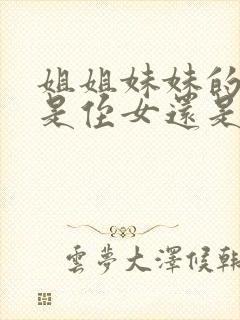 姐姐妹妹的
是侄女還是
雲夢大澤候